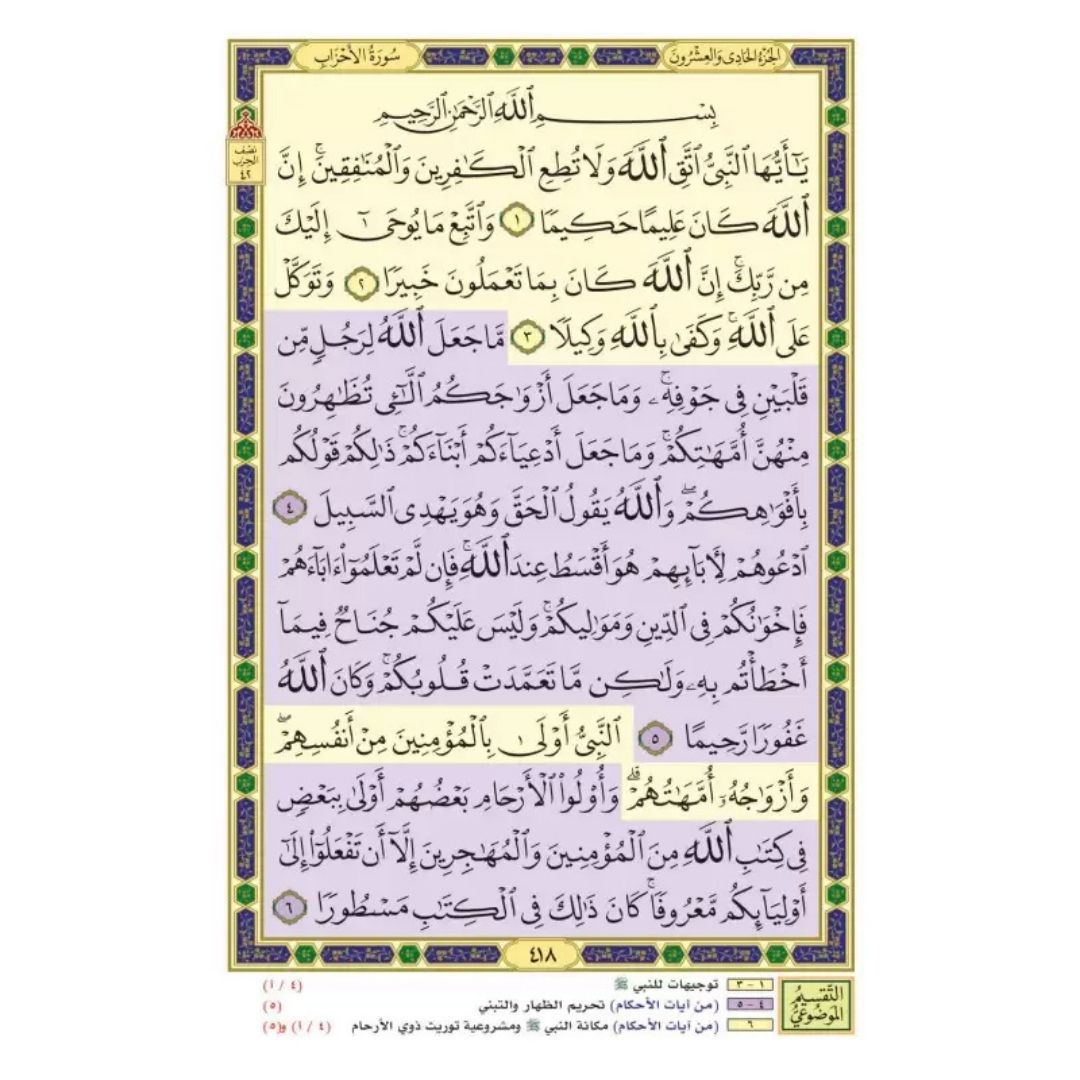 الجزء الحادي والعشرون
سورة الأحزاب
نصف
الحزب
٤٢
بِسْمِ ٱللَّهِ ٱلرَّحْمَٰنِ ٱلرَّحِيمِ
يَـٰٓأَيُّهَا ٱلنَّبِىُّ ٱتَّقِ ٱللَّهَ وَلَا تُطِعِ ٱلْكَـٰفِرِينَ وَٱلْمُنَـٰفِقِينَ ۚ إِنَّ
ٱللَّهَ كَانَ عَلِيمًا حَكِيمًا ١ وَٱتَّبِعْ مَا يُوحَىٰٓ إِلَيْكَ
مِن رَّبِّكَ ۚ إِنَّ ٱللَّهَ كَانَ بِمَا تَعْمَلُونَ خَبِيرًا ٢ وَتَوَكَّلْ
عَلَى ٱللَّهِ ۚ وَكَفَىٰ بِٱللَّهِ وَكِيلًا ٣ مَّا جَعَلَ ٱللَّهُ لِرَجُلٍ مِّن
قَلْبَيْنِ فِى جَوْفِهِۦ ۚ وَمَا جَعَلَ أَزْوَٰجَكُمُ ٱلَّـٰٓـِٔى تُظَـٰهِرُونَ
مِنْهُنَّ أُمَّهَـٰتِكُمْ ۚ وَمَا جَعَلَ أَدْعِيَآءَكُمْ أَبْنَآءَكُمْ ۚ ذَٰلِكُمْ قَوْلُكُم
بِأَفْوَٰهِكُمْ ۖ وَٱللَّهُ يَقُولُ ٱلْحَقَّ وَهُوَ يَهْدِى ٱلسَّبِيلَ ٤
ٱدْعُوهُمْ لِـَٔابَآئِهِمْ هُوَ أَقْسَطُ عِندَ ٱللَّهِ ۚ فَإِن لَّمْ تَعْلَمُوٓا۟ ءَابَآءَهُمْ
فَإِخْوَٰنُكُمْ فِى ٱلدِّينِ وَمَوَٰلِيكُمْ ۚ وَلَيْسَ عَلَيْكُمْ جُنَاحٌ فِيمَآ
أَخْطَأْتُم بِهِۦ وَلَـٰكِن مَّا تَعَمَّدَتْ قُلُوبُكُمْ ۚ وَكَانَ ٱللَّهُ
غَفُورًا رَّحِيمًا ٥ ٱلنَّبِىُّ أَوْلَىٰ بِٱلْمُؤْمِنِينَ مِنْ أَنفُسِهِمْ ۖ
وَأَزْوَٰجُهُۥٓ أُمَّهَـٰتُهُمْ ۗ وَأُو۟لُوا۟ ٱلْأَرْحَامِ بَعْضُهُمْ أَوْلَىٰ بِبَعْضٍ
فِى كِتَـٰبِ ٱللَّهِ مِنَ ٱلْمُؤْمِنِينَ وَٱلْمُهَـٰجِرِينَ إِلَّآ أَن تَفْعَلُوٓا۟ إِلَىٰٓ
أَوْلِيَآئِكُم مَّعْرُوفًا ۚ كَانَ ذَٰلِكَ فِى ٱلْكِتَـٰبِ مَسْطُورًا ٦
٤١٨
التقسيم
الموضوعي
١ - ٣ توجيهات للنبي ﷺ (٤ / ١)
٤ - ٥ (من آيات الأحكام) تحريم الظهار والتبني (٥)
٦ (من آيات الأحكام) مكانة النبي ﷺ ومشروعية توريث ذوي الأرحام (٤ / ١) و(٥)